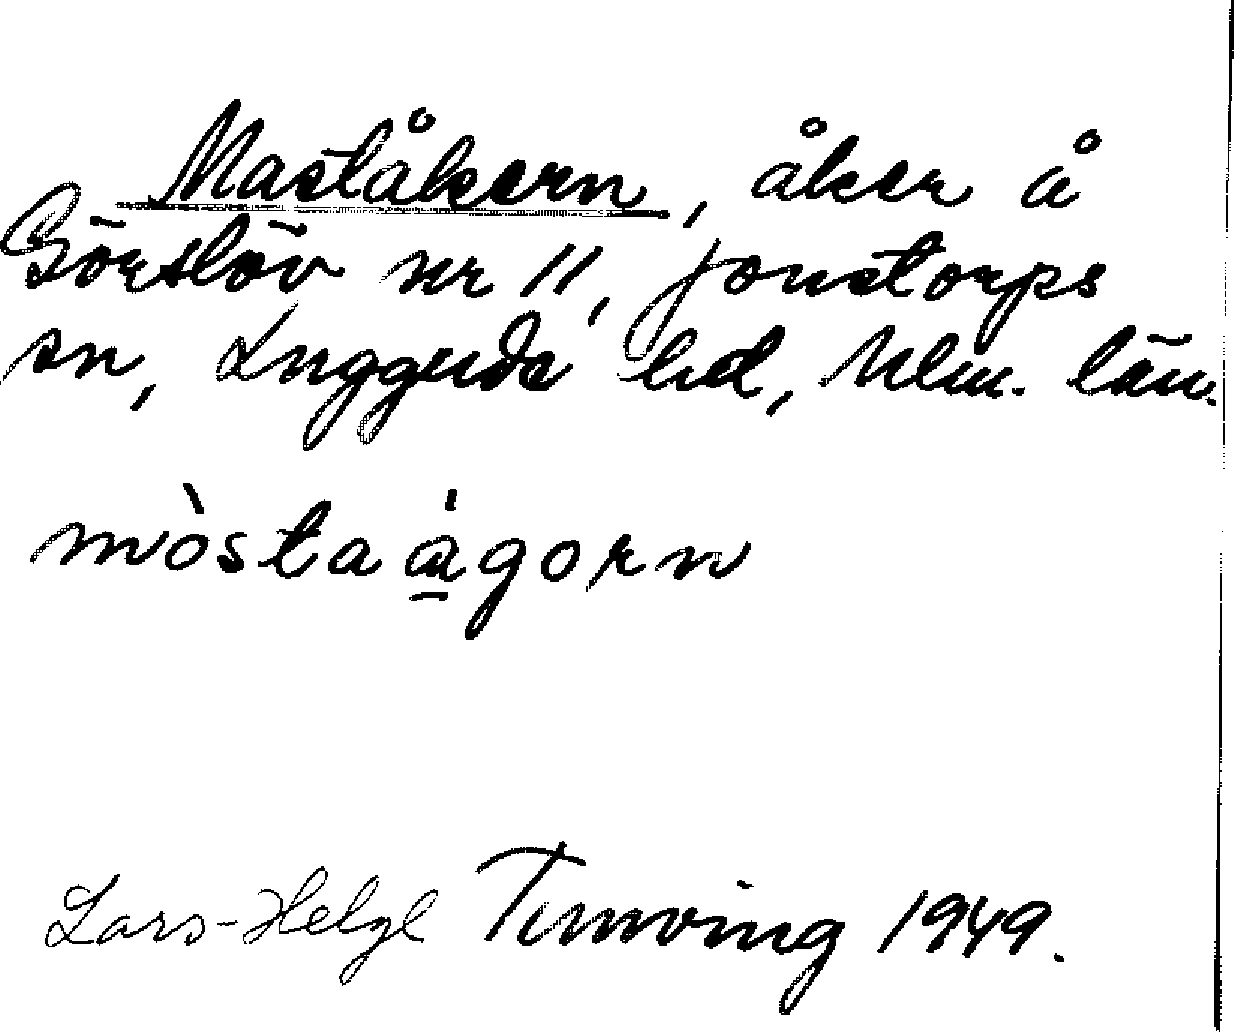 Maståkern, åker å
Görslöv nr 11, Jonstorps
sn, Luggude hd, Mlm. län.
mòstaágorn
Lars-Helge 1949.